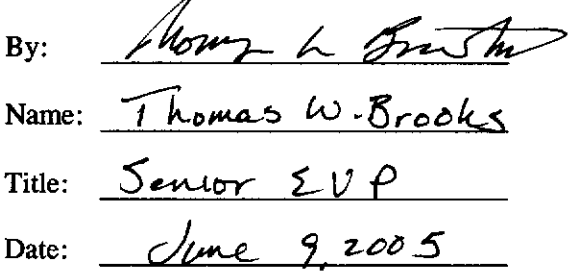 By:
Name: Thomas W. Brooks
Title: Senior EVP
Date: June 9, 2005